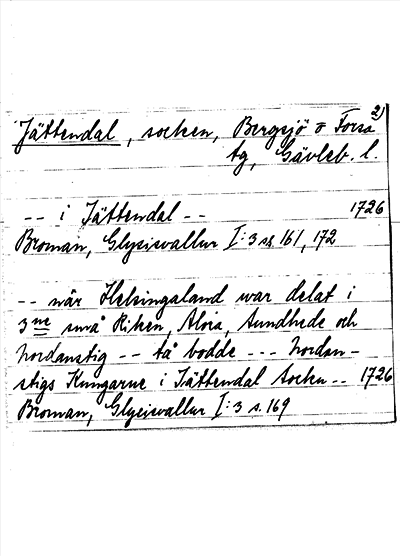 2)
Jättendal, socken, Bergsjö o Forsa
tg, Gävleb. l.
-- i Jättendal -- 1726
Broman, Glysisvallur I:3 ss. 161, 172
-- når Helsingaland war delat i
3ne små Riken, Alora, Sundhede och
Nordanstig -- tå bodde --- Nordan-
stigs Kungarne i Jättendal Socken -- 1726
Broman, Glysisvallur I:3 s. 169